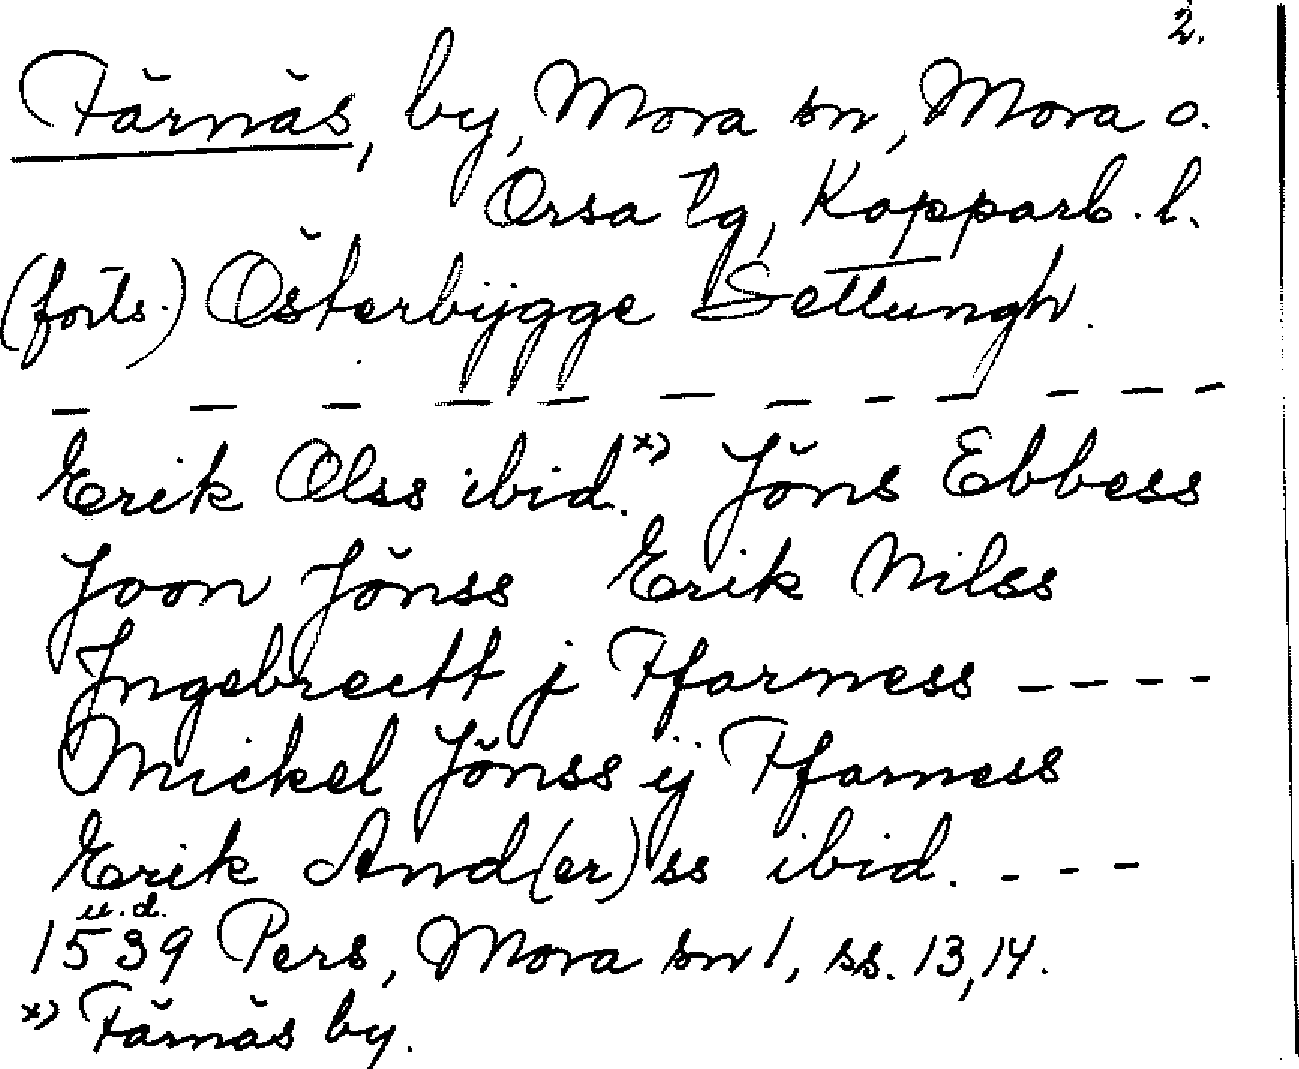 2.
Färnäs, by, Mora sn, Mora o.
Orsa tg, Kopparb. l.
(forts.) Österbÿgge Settungh.
— — — — — — — — — — — —
Erik Olss ibid.x) Jöns Ebbess
Joon Jönss Erik Nilss
Jngebrectt j Ffarness - - - -
Mickel Jönss ÿ Ffarness
Erik And(er)ss ibid. - - -
u.d.
1539 Pers, Mora sn 1, ss. 13, 14.
x) Färnäs by.